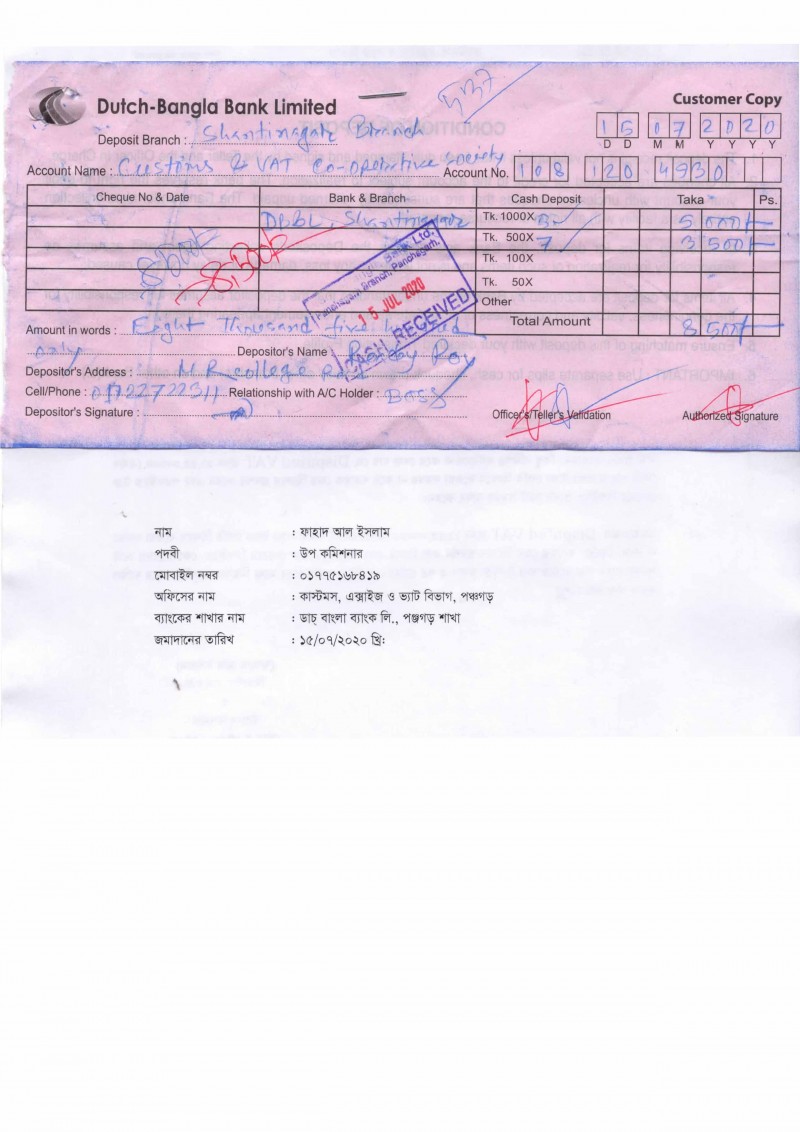 Dutch-Bangla Bank Limited
Customer Copy
Deposit Branch : Shantinagar Branch
15 07 2020
D D M M Y Y Y Y
Account Name : Customs & VAT Co-operative Society Account No. 108 120 4930
Cheque No & Date Bank & Branch Cash Deposit Taka Ps.
DBBL, Shantinagar Tk. 1000X 5 5 000/-
Tk. 500X 7 3 500/-
Tk. 100X
Tk. 50X
Other
Total Amount 8 500/-
8500/-
8,500/-
Bank Ltd.
Panchagarh Branch, Panchagarh.
15 JUL 2020
CASH RECEIVED
Amount in words : Eight Thousand five hundred
only Depositor's Name : Roy
Depositor's Address : M.R. college Road
Cell/Phone : 01722722311 Relationship with A/C Holder : Boss
Depositor's Signature :
Officer's/Teller's Validation Authorized Signature
নাম : ফাহাদ আল ইসলাম
পদবী : উপ কমিশনার
মোবাইল নম্বর : ০১৭৭৫১৬৮৪১৯
অফিসের নাম : কাস্টমস, এক্সাইজ ও ভ্যাট বিভাগ, পঞ্চগড়
ব্যাংকের শাখার নাম : ডাচ্ বাংলা ব্যাংক লি., পঞ্চগড় শাখা
জমাদানের তারিখ : ১৫/০৭/২০২০ খ্রি: